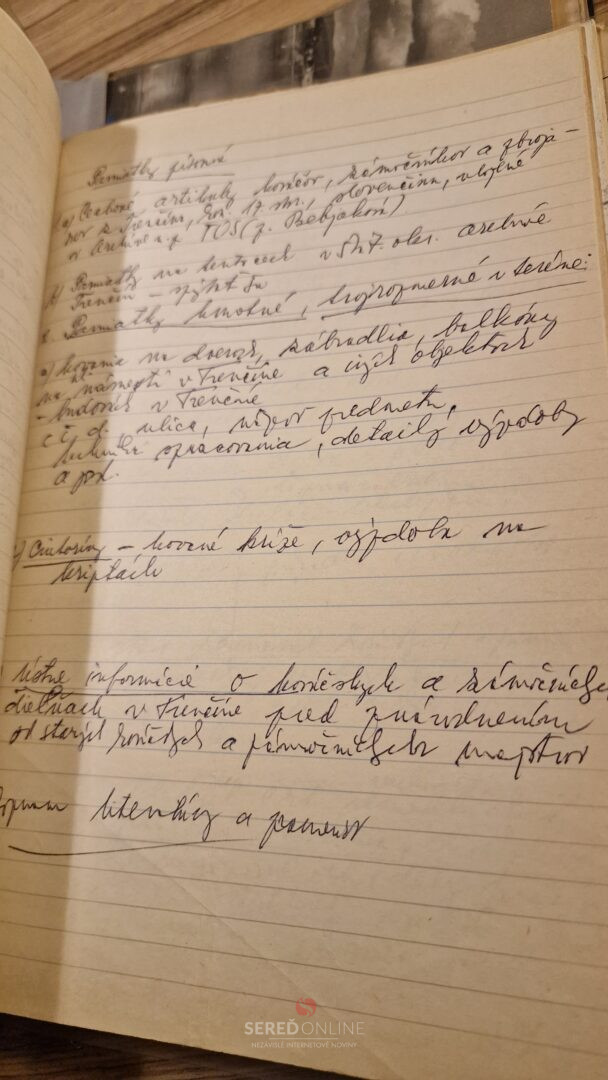 Pamiatky písomné
a) Cechové artikuly kováčov, zámočníkov a zbroja-
rov z Trenčína, 17. stor., slovenčina, uložené
v archíve n.p. TOS
b) Pamiatky na v Štát. okr. archíve
Trenčín –
2. Pamiatky hmotné, trojrozmerné v teréne:
a) kovania na dverách, zábradlia, balkóny
na "námestí" v Trenčíne a iných objektoch
- budovách v Trenčíne
č. d. ulica, názov predmetu,
technika spracovania, detaily výzdoby
a pod.
Cintoríny – kované kríže, výzdoba na
kriptách
Ústne informácie o kováčskych a zámočníckych
dielňach v Trenčíne pred znárodnením
od starých kováčskych a zámočníckych majstrov
literatúry a prameňov
SEREĎONLINE
NEZÁVISLÉ INTERNETOVÉ NOVINY